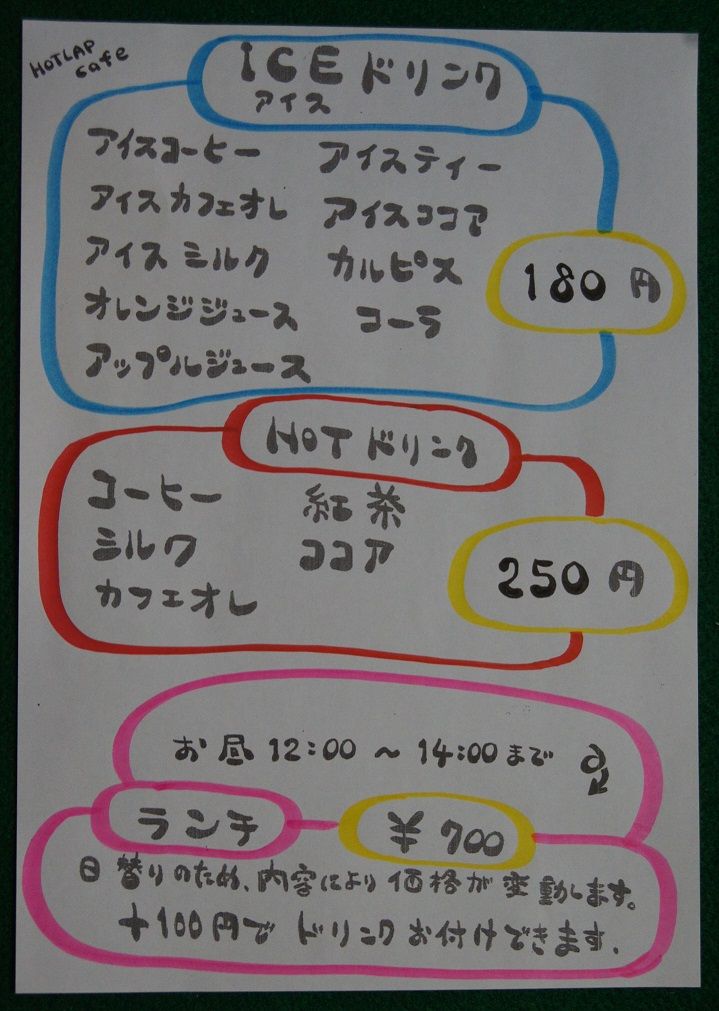 HOTLAP
cafe
ICE ドリンク
アイス
アイスコーヒー アイスティー
アイスカフェオレ アイスココア
アイスミルク カルピス
オレンジジュース コーラ
アップルジュース
180円
HOTドリンク
コーヒー 紅茶
ミルク ココア
カフェオレ
250円
お昼 12:00 ~ 14:00まで
ランチ ¥700
日替りのため、内容により価格が変動します。
+100円でドリンクお付けできます.